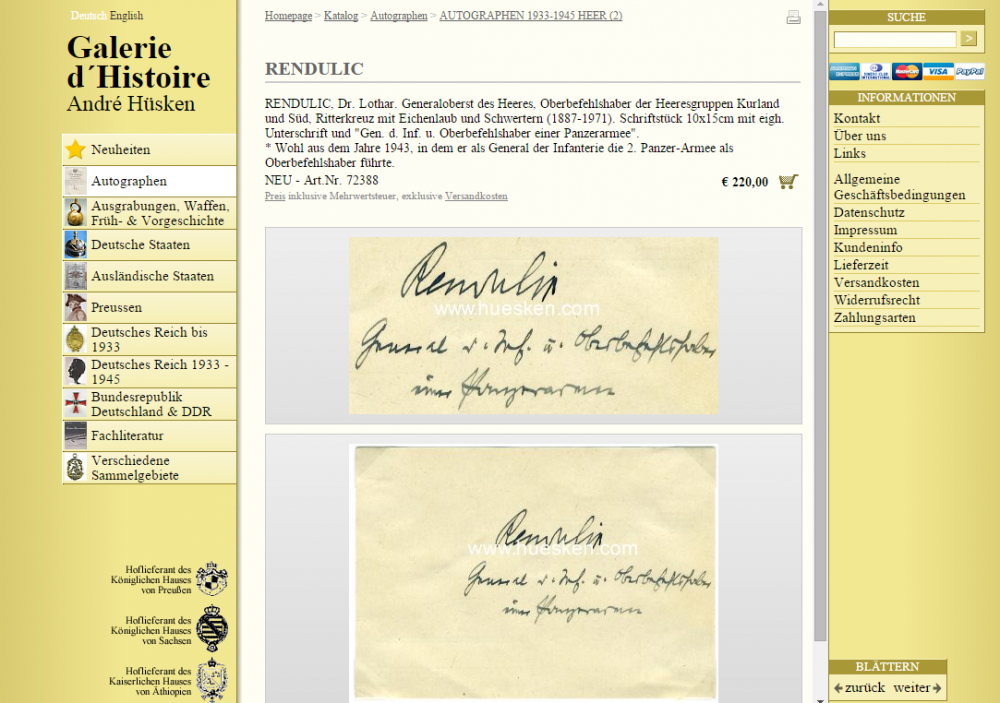 Deutsch English
Galerie
d´Histoire
André Hüsken
Neuheiten
Autographen
Ausgrabungen, Waffen,
Früh- & Vorgeschichte
Deutsche Staaten
Ausländische Staaten
Preussen
Deutsches Reich bis
1933
Deutsches Reich 1933 -
1945
Bundesrepublik
Deutschland & DDR
Fachliteratur
Verschiedene
Sammelgebiete
Hoflieferant des
Königlichen Hauses
von Preußen
Hoflieferant des
Königlichen Hauses
von Sachsen
Hoflieferant des
Kaiserlichen Hauses
von Äthiopien
Homepage > Katalog > Autographen > AUTOGRAPHEN 1933-1945 HEER (2)
RENDULIC
RENDULIC, Dr. Lothar. Generaloberst des Heeres, Oberbefehlshaber der Heeresgruppen Kurland
und Süd, Ritterkreuz mit Eichenlaub und Schwertern (1887-1971). Schriftstück 10x15cm mit eigh.
Unterschrift und "Gen. d. Inf. u. Oberbefehlshaber einer Panzerarmee".
* Wohl aus dem Jahre 1943, in dem er als General der Infanterie die 2. Panzer-Armee als
Oberbefehlshaber führte.
NEU - Art.Nr. 72388
€ 220,00
Preis inklusive Mehrwertsteuer, exklusive Versandkosten
Rendulic
www.huesken.com
General d. Inf. u. Oberbefehlshaber
einer Panzerarmee
Rendulic
www.huesken.com
General d. Inf. u. Oberbefehlshaber
einer Panzerarmee
SUCHE
>
MasterCard VISA PayPal
INFORMATIONEN
Kontakt
Über uns
Links
Allgemeine
Geschäftsbedingungen
Datenschutz
Impressum
Kundeninfo
Lieferzeit
Versandkosten
Widerrufsrecht
Zahlungsarten
BLÄTTERN
zurück weiter